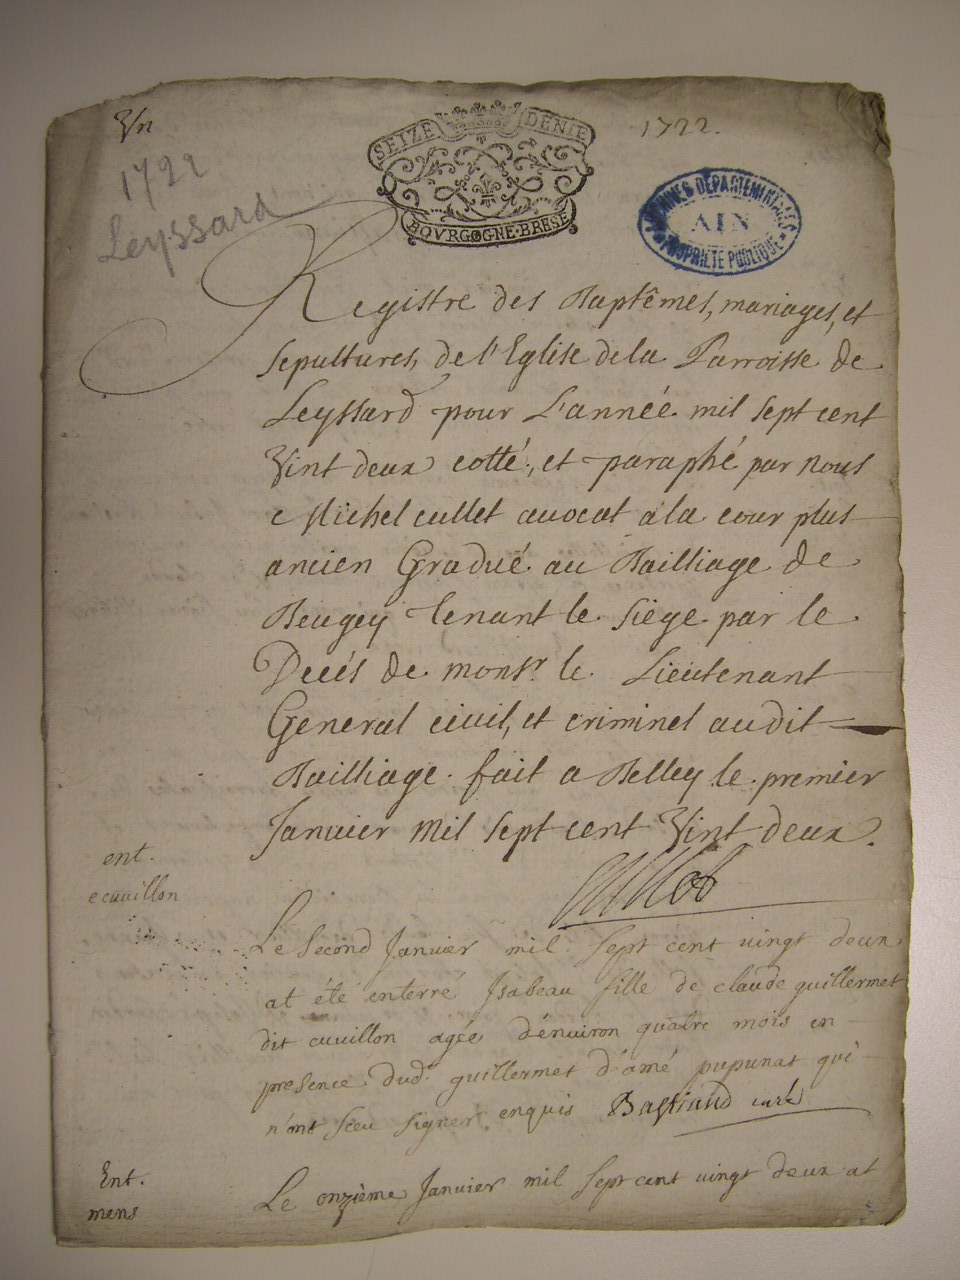 Vn
1722.
SEIZE DENIE
BOVRGOGNE·BRESE
ARCHIVES DÉPARTEMENTALES
AIN
PROPRIÉTÉ PUBLIQUE
1722
Leyssard
Registre des Baptêmes, mariages, et
sepultures, de l'Eglise de la Parroisse de
Leyssard pour L'année mil sept cent
Vint deux cotté, et paraphé par nous
Michel cullet avocat a la cour plus
ancien Gradué au Bailliage de
Beugey tenant le siége par le
Decés de monsr. le Lieutenant
General civil, et criminel audit
Bailliage. fait a Belley le premier
Janvier mil sept cent Vint deux.
Cullet
ent.
ecuvillon
Le Second Janvier mil sept cent vingt deux
at été enterré Isabeau fille de claude guillermet
dit cuvillon agée d'environ quatre mois en
presence dud. guillermet d'amé pupunat qui
n'ont sceu signer enquis Bastiand curé
Ent.
mens
Le onzième Janvier mil sept cent vingt deux at